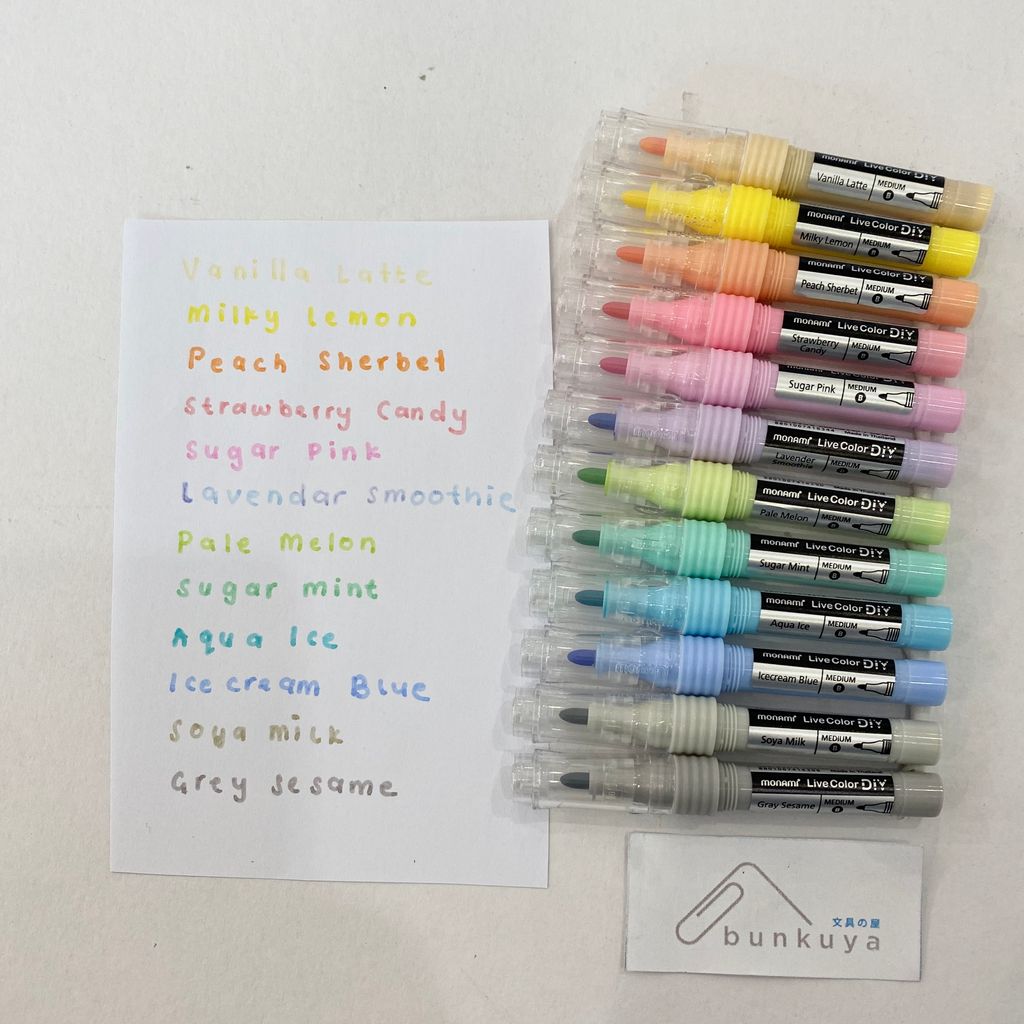 Vanilla Latte
Milky Lemon
Peach Sherbet
Strawberry Candy
Sugar Pink
Lavendar Smoothie
Pale Melon
Sugar mint
Aqua Ice
Ice cream Blue
Soya milk
Grey sesame
monami Live Color DIY
Vanilla Latte MEDIUM B
monami Live Color DIY
Milky Lemon MEDIUM B
monami Live Color DIY
Peach Sherbet MEDIUM B
monami Live Color DIY
Strawberry MEDIUM
Candy B
Sugar Pink MEDIUM B
monami Live Color DIY
Lavender MEDIUM
Smoothie B
monami Live Color DIY
Pale Melon MEDIUM B
monami Live Color DIY
Sugar Mint MEDIUM B
monami Live Color DIY
Aqua Ice MEDIUM B
monami Live Color DIY
Icecream Blue MEDIUM B
monami Live Color DIY
Soya Milk MEDIUM B
Made in Thailand
monami Live Color DIY
Gray Sesame MEDIUM B
文具の屋
bunkuya